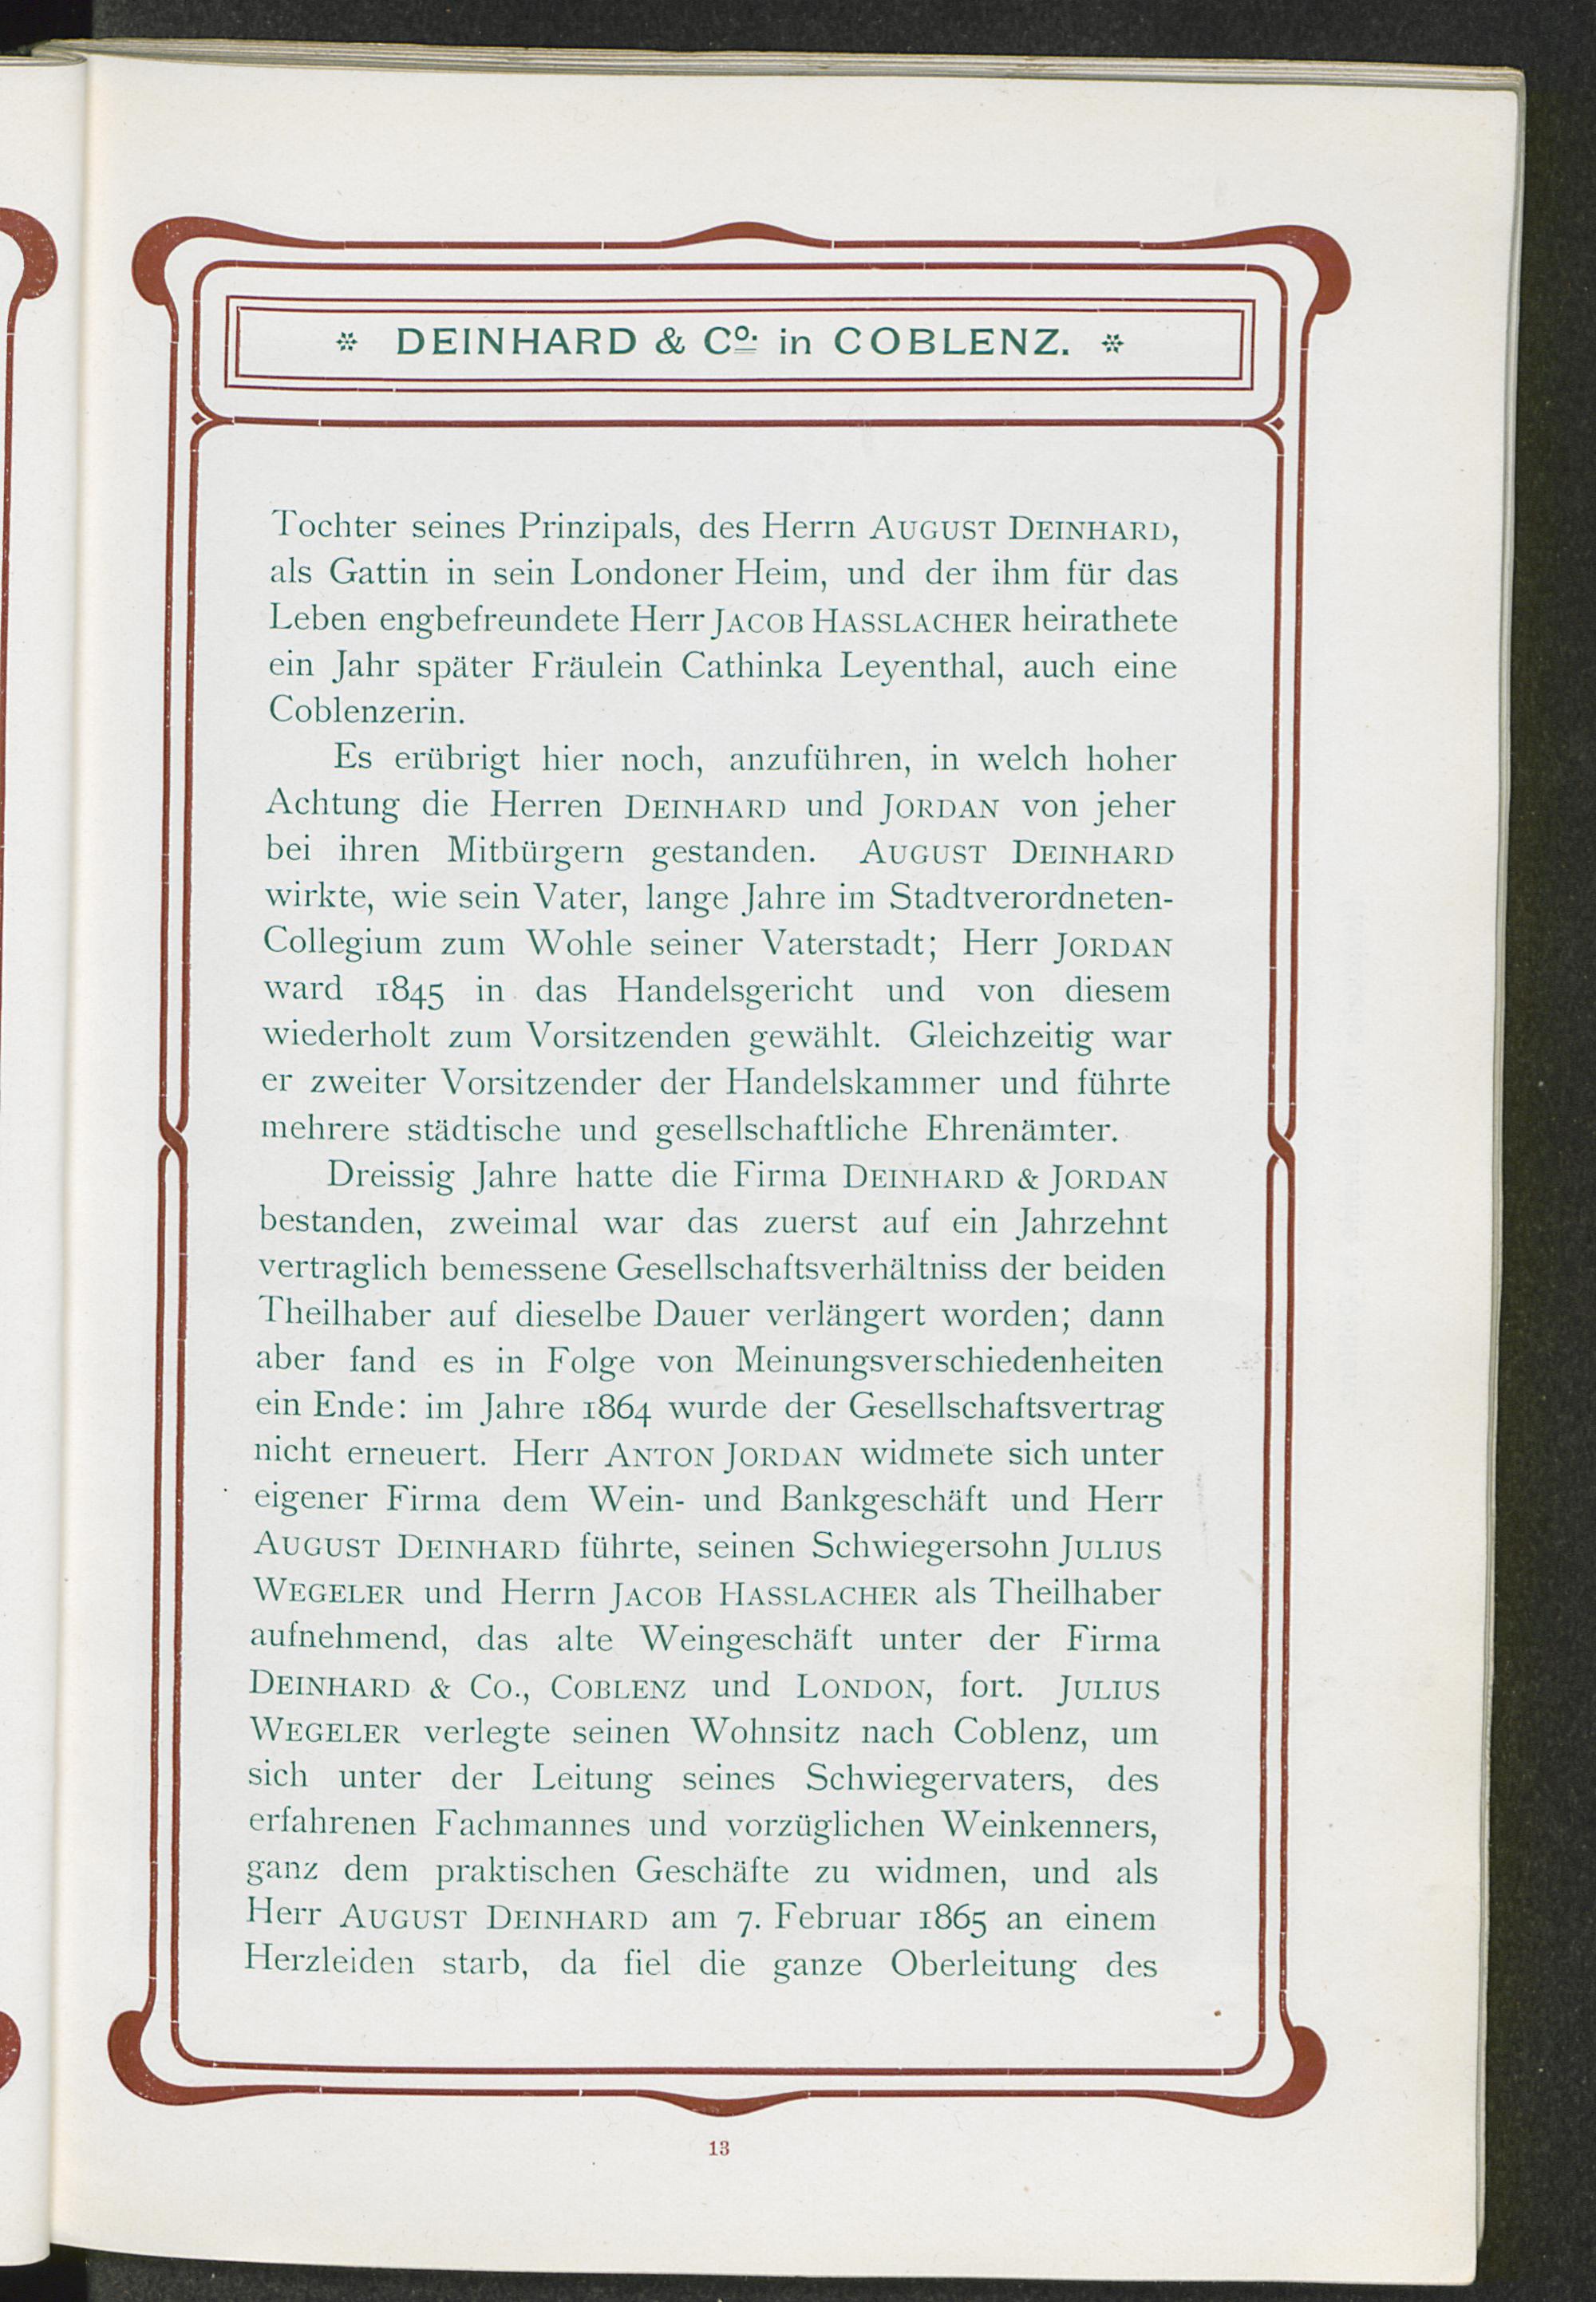 * DEINHARD & Co. in COBLENZ. *
Tochter seines Prinzipals, des Herrn AUGUST DEINHARD,
als Gattin in sein Londoner Heim, und der ihm für das
Leben engbefreundete Herr JACOB HASSLACHER heirathete
ein Jahr später Fräulein Cathinka Leyenthal, auch eine
Coblenzerin.
Es erübrigt hier noch, anzuführen, in welch hoher
Achtung die Herren DEINHARD und JORDAN von jeher
bei ihren Mitbürgern gestanden. AUGUST DEINHARD
wirkte, wie sein Vater, lange Jahre im Stadtverordneten-
Collegium zum Wohle seiner Vaterstadt; Herr JORDAN
ward 1845 in das Handelsgericht und von diesem
wiederholt zum Vorsitzenden gewählt. Gleichzeitig war
er zweiter Vorsitzender der Handelskammer und führte
mehrere städtische und gesellschaftliche Ehrenämter.
Dreissig Jahre hatte die Firma DEINHARD & JORDAN
bestanden, zweimal war das zuerst auf ein Jahrzehnt
vertraglich bemessene Gesellschaftsverhältniss der beiden
Theilhaber auf dieselbe Dauer verlängert worden; dann
aber fand es in Folge von Meinungsverschiedenheiten
ein Ende: im Jahre 1864 wurde der Gesellschaftsvertrag
nicht erneuert. Herr ANTON JORDAN widmete sich unter
eigener Firma dem Wein- und Bankgeschäft und Herr
AUGUST DEINHARD führte, seinen Schwiegersohn JULIUS
WEGELER und Herrn JACOB HASSLACHER als Theilhaber
aufnehmend, das alte Weingeschäft unter der Firma
DEINHARD & CO., COBLENZ und LONDON, fort. JULIUS
WEGELER verlegte seinen Wohnsitz nach Coblenz, um
sich unter der Leitung seines Schwiegervaters, des
erfahrenen Fachmannes und vorzüglichen Weinkenners,
ganz dem praktischen Geschäfte zu widmen, und als
Herr AUGUST DEINHARD am 7. Februar 1865 an einem
Herzleiden starb, da fiel die ganze Oberleitung des
13